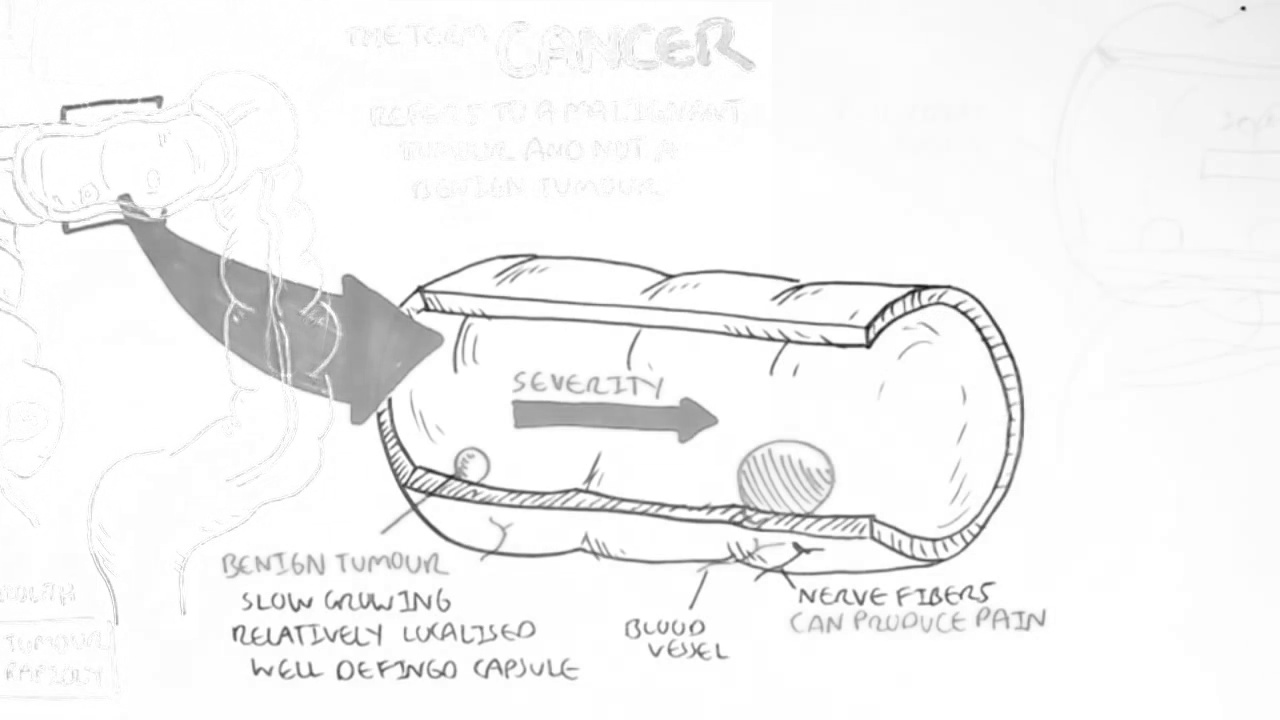 THE TERM CANCER
REFERS TO A MALIGNANT
TUMOUR AND NOT A
BENIGN TUMOUR
SEVERITY
BENIGN TUMOUR
SLOW GROWING
RELATIVELY LOCALISED
WELL DEFINGD CAPSULE
BLOOD
VESSEL
NERVE FIBERS
CAN PRODUCE PAIN
TUMOUR